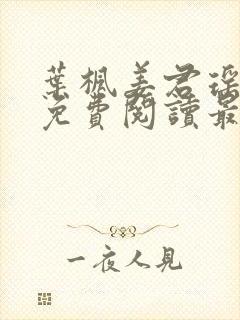 葉楓姜君瑤
免費閱讀最
一夜人見